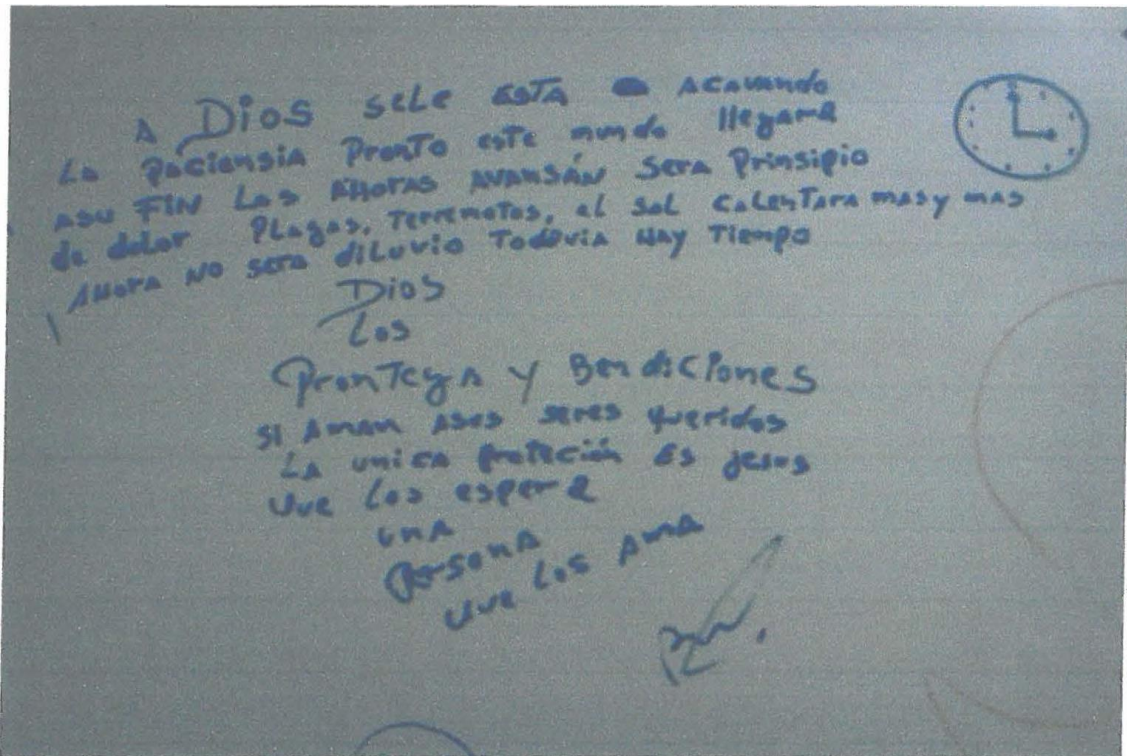 A Dios sele ESTA ACAVANDO
LA PACIENSIA PronTo este mundo llegara
ASU FIN LAS AHORAS AVANSÁN Sera Prinsipio
de dolor PLAgAs, Terremotos, el Sol CALenTARA mas y mas
AHORA NO sera diLuvio Todavia HAY Tiempo
Dios
Los
PronTegA Y BendiCiones
SI Aman Asus seres queridos
LA uniCA proteción Es jesus
Uve Los espera
UNA
PersonA
Uve Los AmA